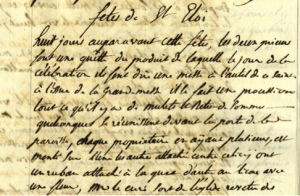 fetes de St Eloi
huit jours auparavant cette fête, les deux prieurs
font une quête du produit de laquelle le jour de la
célébration ils font dire une messe à l'autel de ce saint
à l'issue de la grand messe il se fait une procession
tout ce qu'il y a de mulets et Betes de somme
quelconques se réunissent devant la porte de la
paroisse, chaque propriétaire en ayant plusieurs, et
montés sur l'un les autres attachés
un ruban attaché à la queue d'autres au avec
une fleur, Mr le curé sort de l'église revetu de